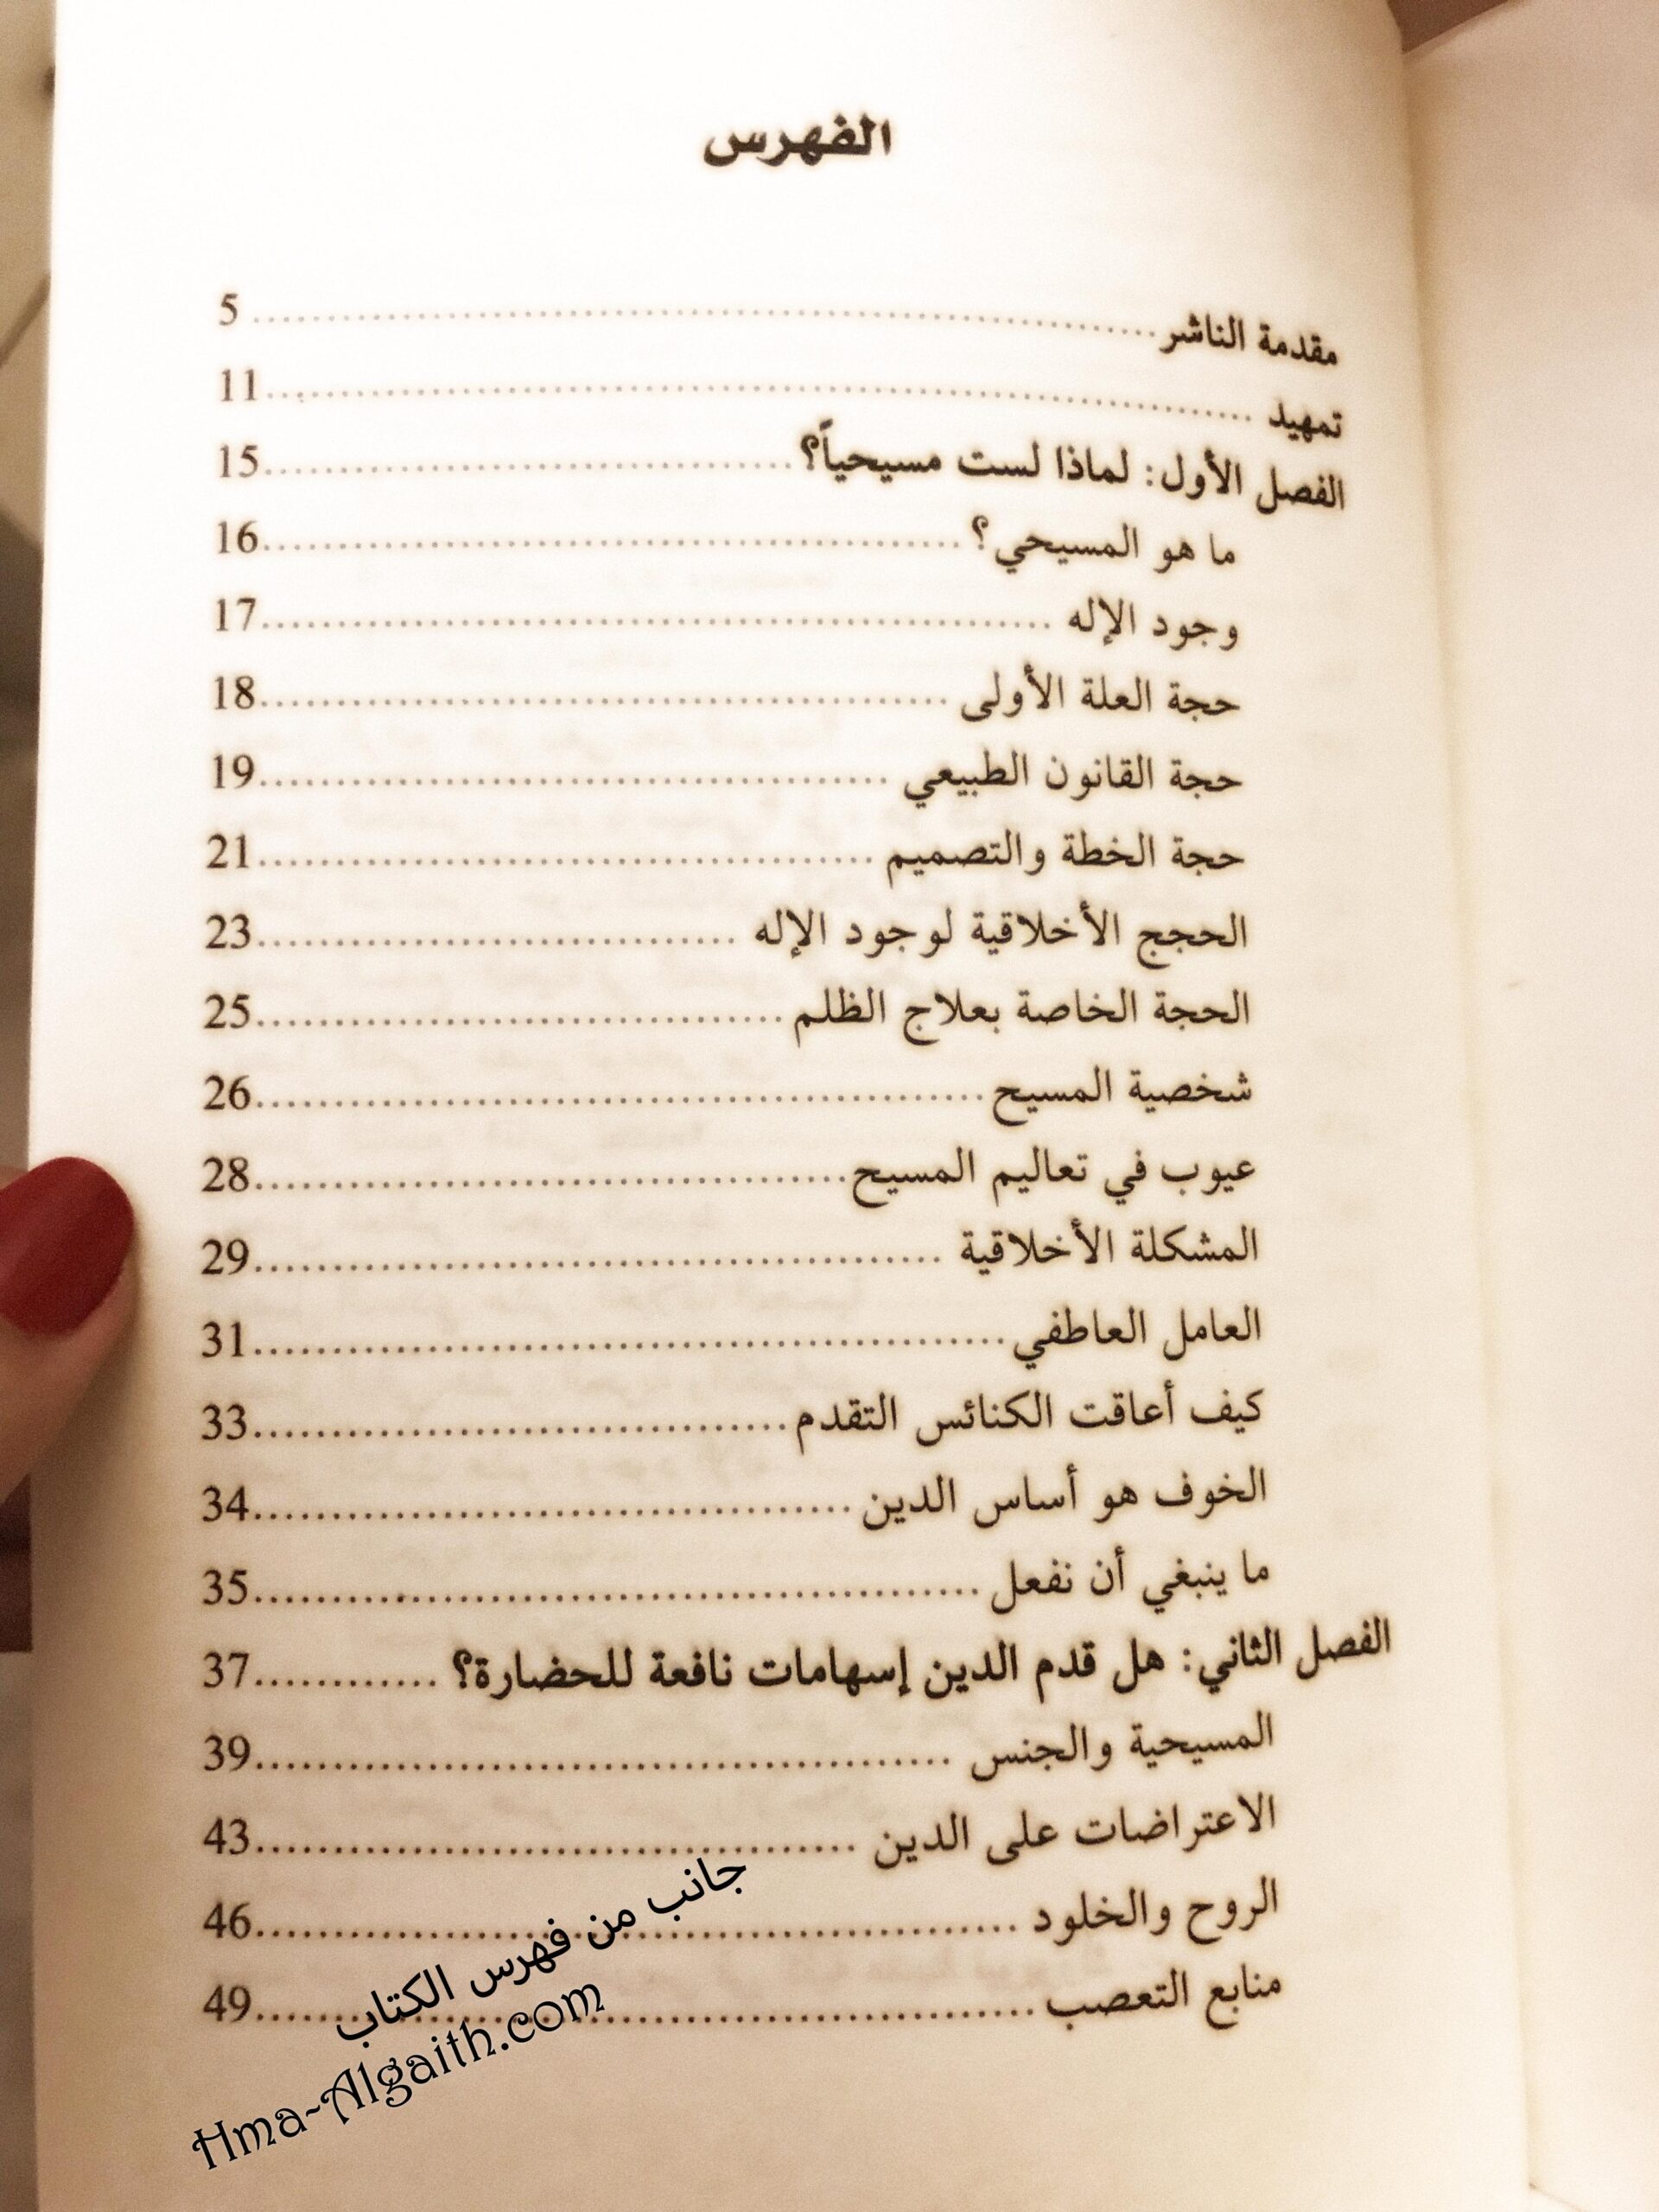 الفهرس
مقدمة الناشر ........ 5
تمهيد ........ 11
الفصل الأول: لماذا لست مسيحياً؟ ........ 15
ما هو المسيحي؟ ........ 16
وجود الإله ........ 17
حجة العلة الأولى ........ 18
حجة القانون الطبيعي ........ 19
حجة الخطة والتصميم ........ 21
الحجج الأخلاقية لوجود الإله ........ 23
الحجة الخاصة بعلاج الظلم ........ 25
شخصية المسيح ........ 26
عيوب في تعاليم المسيح ........ 28
المشكلة الأخلاقية ........ 29
العامل العاطفي ........ 31
كيف أعاقت الكنائس التقدم ........ 33
الخوف هو أساس الدين ........ 34
ما ينبغي أن نفعل ........ 35
الفصل الثاني: هل قدم الدين إسهامات نافعة للحضارة؟ ........ 37
المسيحية والجنس ........ 39
الاعتراضات على الدين ........ 43
الروح والخلود ........ 46
منابع التعصب ........ 49
جانب من فهرس الكتاب
Hma-Algaith.com